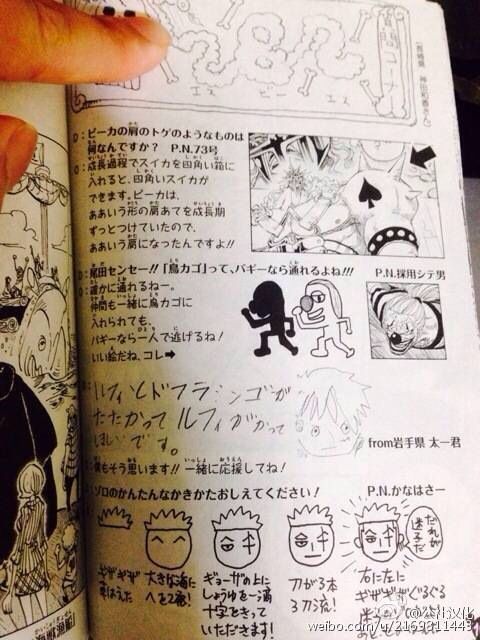 SBS
エスビーエス
質問コーナー
D:ピーカの肩のトゲのようなものは
何なんですか? P.N.73号
O:成長過程でスイカを四角い箱に
入れると、四角いスイカが
できます。ピーカは、
ああいう形の肩あてを成長期
ずっとつけていたので、
ああいう肩になったんですよ!!
D:尾田センセー!!「鳥カゴ」って、バギーなら通れるよね!!!
P.N.採用シテ男
O:確かに通れるねー。
仲間も一緒に鳥カゴに
入れられても、
バギーなら一人で逃げれるね!
いい絵だね、コレ➡
ルフィとドフラミンゴが
たたかって ルフィがかって
ほしいです。
from岩手県 太一君
僕もそう思います!! 一緒に応援してね!
ゾロのかんたんなかきかたおしえてください!
P.N.かなはさー
ギザギザギザ
まゆうえた
大きな海に
へを2番!
ギョーザの上に
しょうゆを一滴
十字をきって
いただきます!
刀が3本
3刀流!
だれが
迷子だ
右に左に
ギザギザぐるぐる
weibo.com/u/2169811443